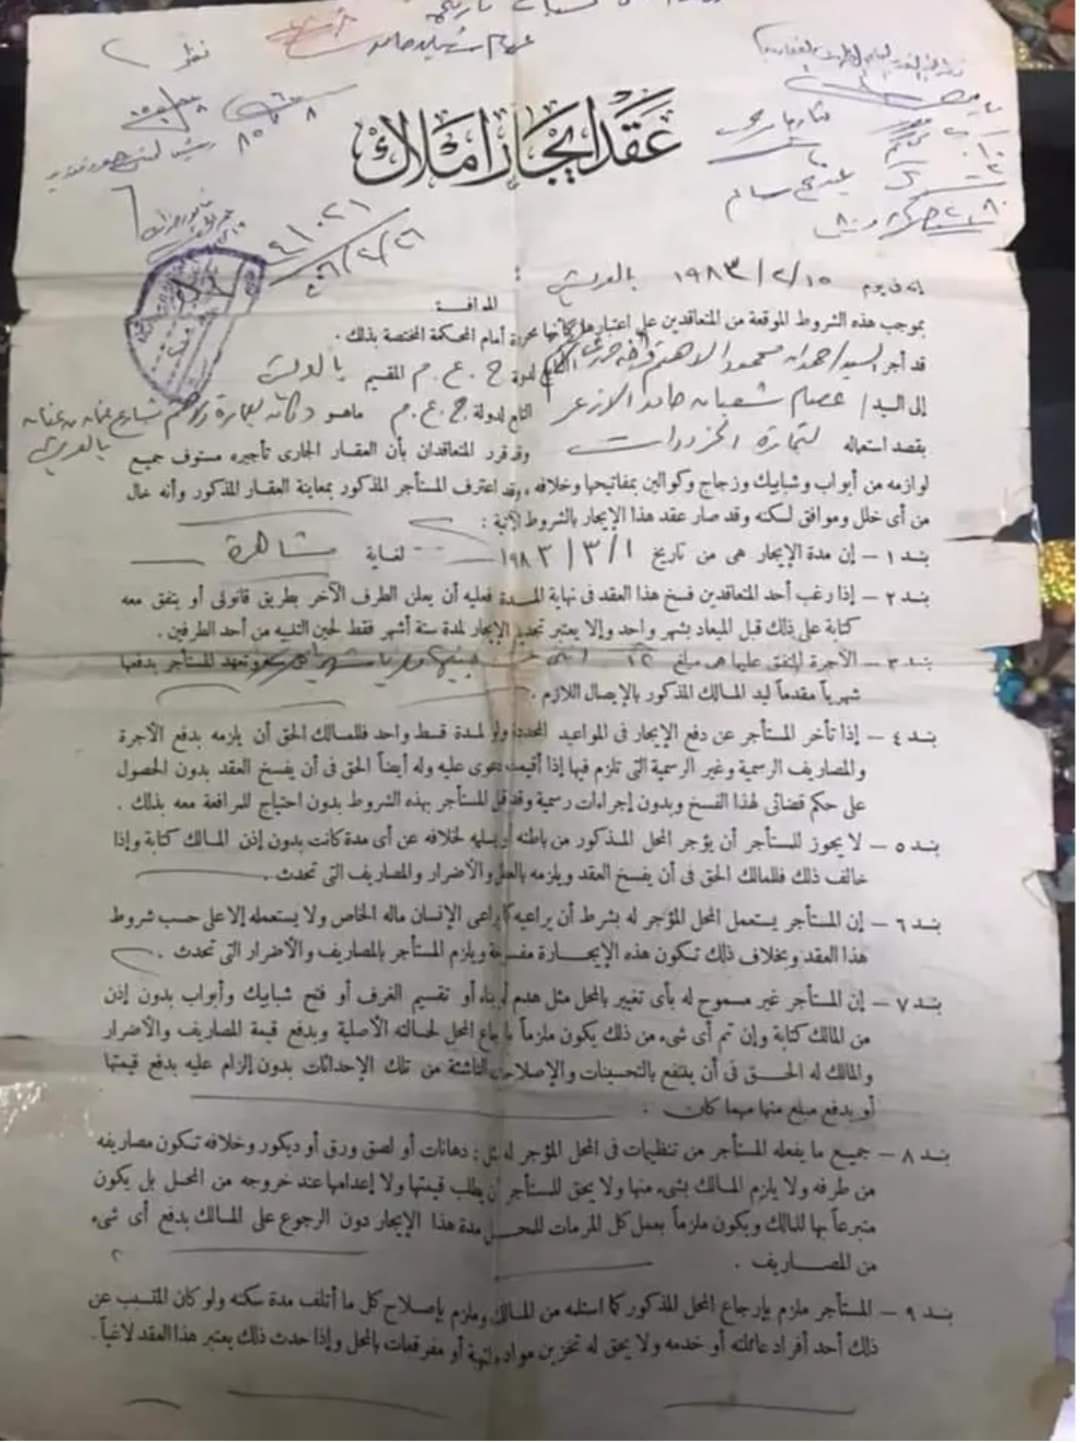 عصام شعبان حامد
نظر
عقد إيجار أملاك
إنه في يوم ١٥/٢/١٩٨٣ بالعريش
الموافق :
بموجب هذه الشروط الموقعة من المتعاقدين على اعتبارها كأنها محررة أمام المحكمة المختصة بذلك .
قد أجر السيد/ حمدان محمود الاهتم التابع لدولة ج . ع . م المقيم بالعريش
إلى السيد / عصام شعبان حامد الازعر التابع لدولة ج . ع . م ماهو دكان بعمارة شارع عثمان بن عفان بالعريش
بقصد استعماله لتجارة الخردوات وقد قرر المتعاقدان بأن العقار الجارى تأجيره مستوف جميع
لوازمه من أبواب وشبابيك وزجاج وكوالين بمفاتيحها وخلافه ، وقد اعترف المستأجر المذكور بمعاينة العقار المذكور وأنه خال
من أى خلل وموافق لسكنه وقد صار عقد هذا الإيجار بالشروط الآتية :
بند ١ – إن مدة الإيجار هى من تاريخ ١/٣/١٩٨٣ لغاية مشاهرة
بند ٢ – إذا رغب أحد المتعاقدين فسخ هذا العقد فى نهاية المدة فعليه أن يعلن الطرف الآخر بطريق قانونى أو يتفق معه
كتابة على ذلك قبل الميعاد بشهر واحد وإلا يعتبر تجديد الإيجار لمدة ستة أشهر فقط لحين التنبيه من أحد الطرفين .
بند ٣ – الأجرة المتفق عليها هى مبلغ ١٢ جنيها وتعهد المستأجر بدفعها
شهرياً مقدماً ليد المالك المذكور بالإيصال اللازم .
بند ٤ – إذا تأخر المستأجر عن دفع الإيجار فى المواعيد المحددة ولو لمدة قسط واحد فللمالك الحق أن يلزمه بدفع الأجرة
والمصاريف الرسمية وغير الرسمية التى تلزم فيها إذا أقيمت دعوى عليه وله أيضاً الحق فى أن يفسخ العقد بدون الحصول
على حكم قضائى لهذا الفسخ وبدون إجراءات رسمية وقد قبل المستأجر بهذه الشروط بدون احتياج للمرافعة معه بذلك .
بند ٥ – لا يجوز للمستأجر أن يؤجر المحل المذكور من باطنه أو يسلمه لخلافه عن أى مدة كانت بدون إذن المالك كتابة وإذا
خالف ذلك فللمالك الحق فى أن يفسخ العقد ويلزمه بالعطل والأضرار والمصاريف التى تحدث .
بند ٦ – إن المستأجر يستعمل المحل المؤجر له بشرط أن يراعيه كما يراعى الإنسان ماله الخاص ولا يستعمله إلا على حسب شروط
هذا العقد وبخلاف ذلك تكون هذه الإيجارة مفسوخة ويلزم المستأجر بالمصاريف والأضرار التى تحدث .
بند ٧ – إن المستأجر غير مسموح له بأى تغيير بالمحل مثل هدم أو بناء أو تقسيم الغرف أو فتح شبابيك وأبواب بدون إذن
من المالك كتابة وإن تم أى شىء من ذلك يكون ملزماً بإرجاع المحل لحالته الأصلية وبدفع قيمة المصاريف والأضرار
والمالك له الحق فى أن ينتفع بالتحسينات والإصلاحات الناشئة من تلك الإحداثات بدون إلزام عليه بدفع قيمتها
أو بدفع مبلغ منها مهما كان .
بند ٨ – جميع ما يفعله المستأجر من تنظيمات فى المحل المؤجر له مثل : دهانات أو لصق ورق أو ديكور وخلافه تكون مصاريفه
من طرفه ولا يلزم المالك بشىء منها ولا يحق للمستأجر أن يطلب قيمتها ولا إعدامها عند خروجه من المحل بل يكون
متبرعاً بها للمالك ويكون ملزماً بعمل كل المرمات للمحل مدة هذا الإيجار دون الرجوع على المالك بدفع أى شىء
من المصاريف .
بند ٩ – المستأجر ملزم بإرجاع المحل المذكور كما استلمه من المالك وملزم بإصلاح كل ما أتلف مدة سكنه ولو كان المتسبب عن
ذلك أحد أفراد عائلته أو خدمه ولا يحق له تخزين مواد ملتهبة أو مفرقعات بالمحل وإذا حدث ذلك يعتبر هذا العقد لاغياً .